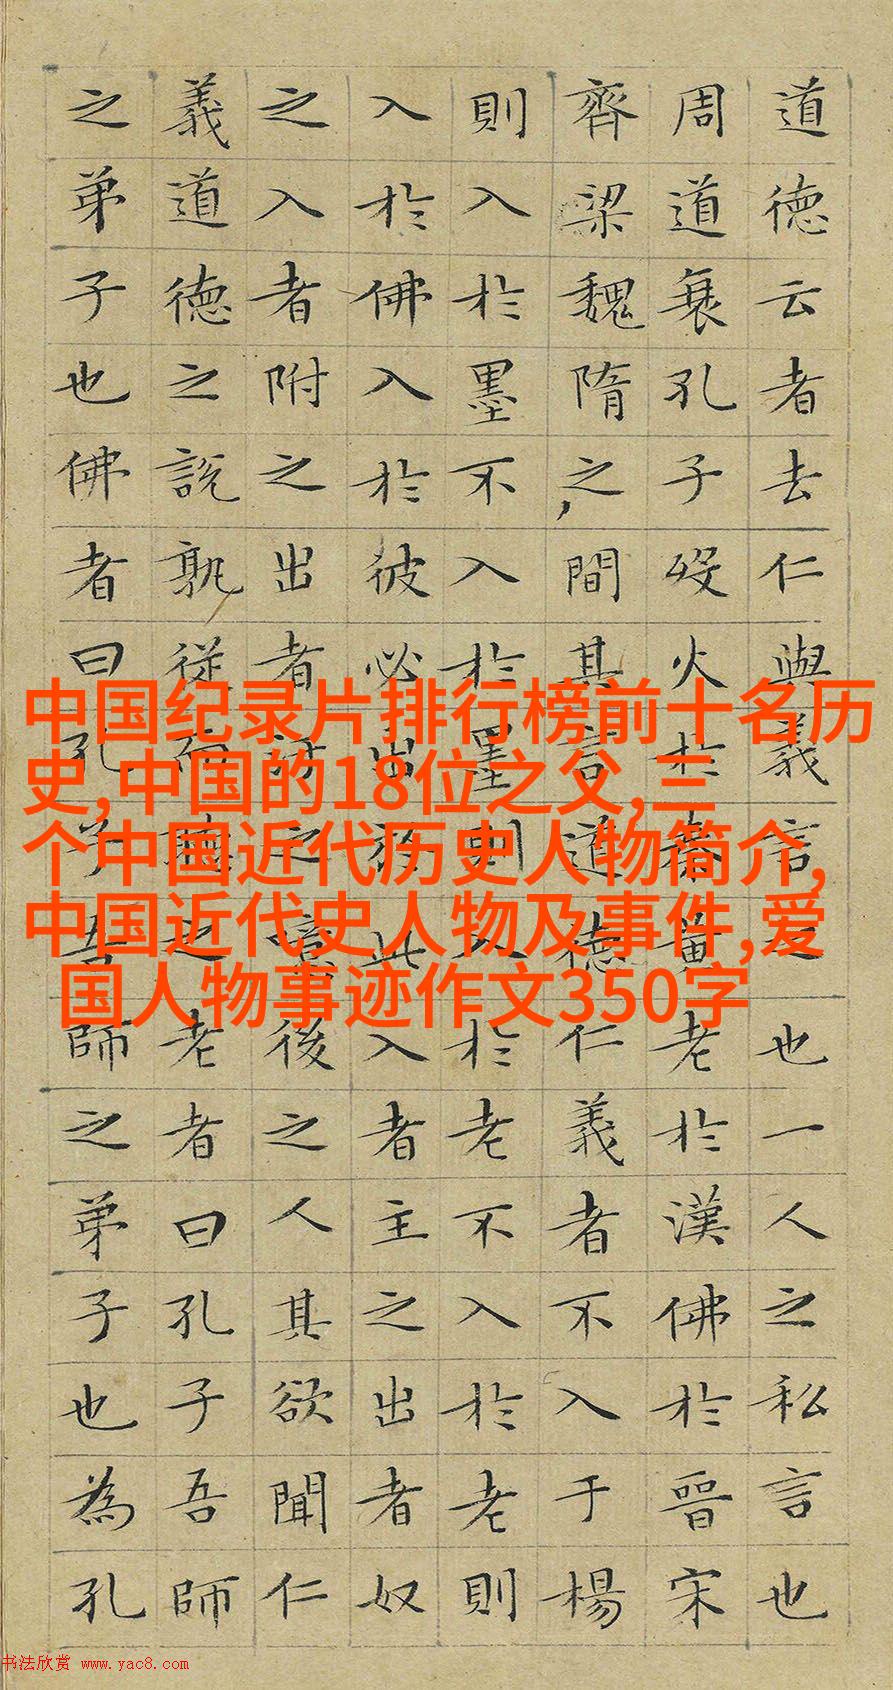 道德云者去仁與義言之也一人之私言也
周道衰孔子歿火於秦黃老於漢佛於晉宋
齊梁魏隋之間其言道德仁義者不入于楊
則入於墨不入於墨則入於老不入於老則
入於佛入於彼必出於此入者主之出者奴
之入者附之出者汙之噫後之人其欲聞仁
義道德之說孰從而聽之老者曰孔子吾師
之弟子也佛者曰孔子吾師之弟子也為孔
中国纪录片排行榜前十名历
史,中国的18位之父,三
个中国近代历史人物简介,
中国近代史人物及事件,爱
国人物事迹作文350字
书法欣赏 www.yac8.com